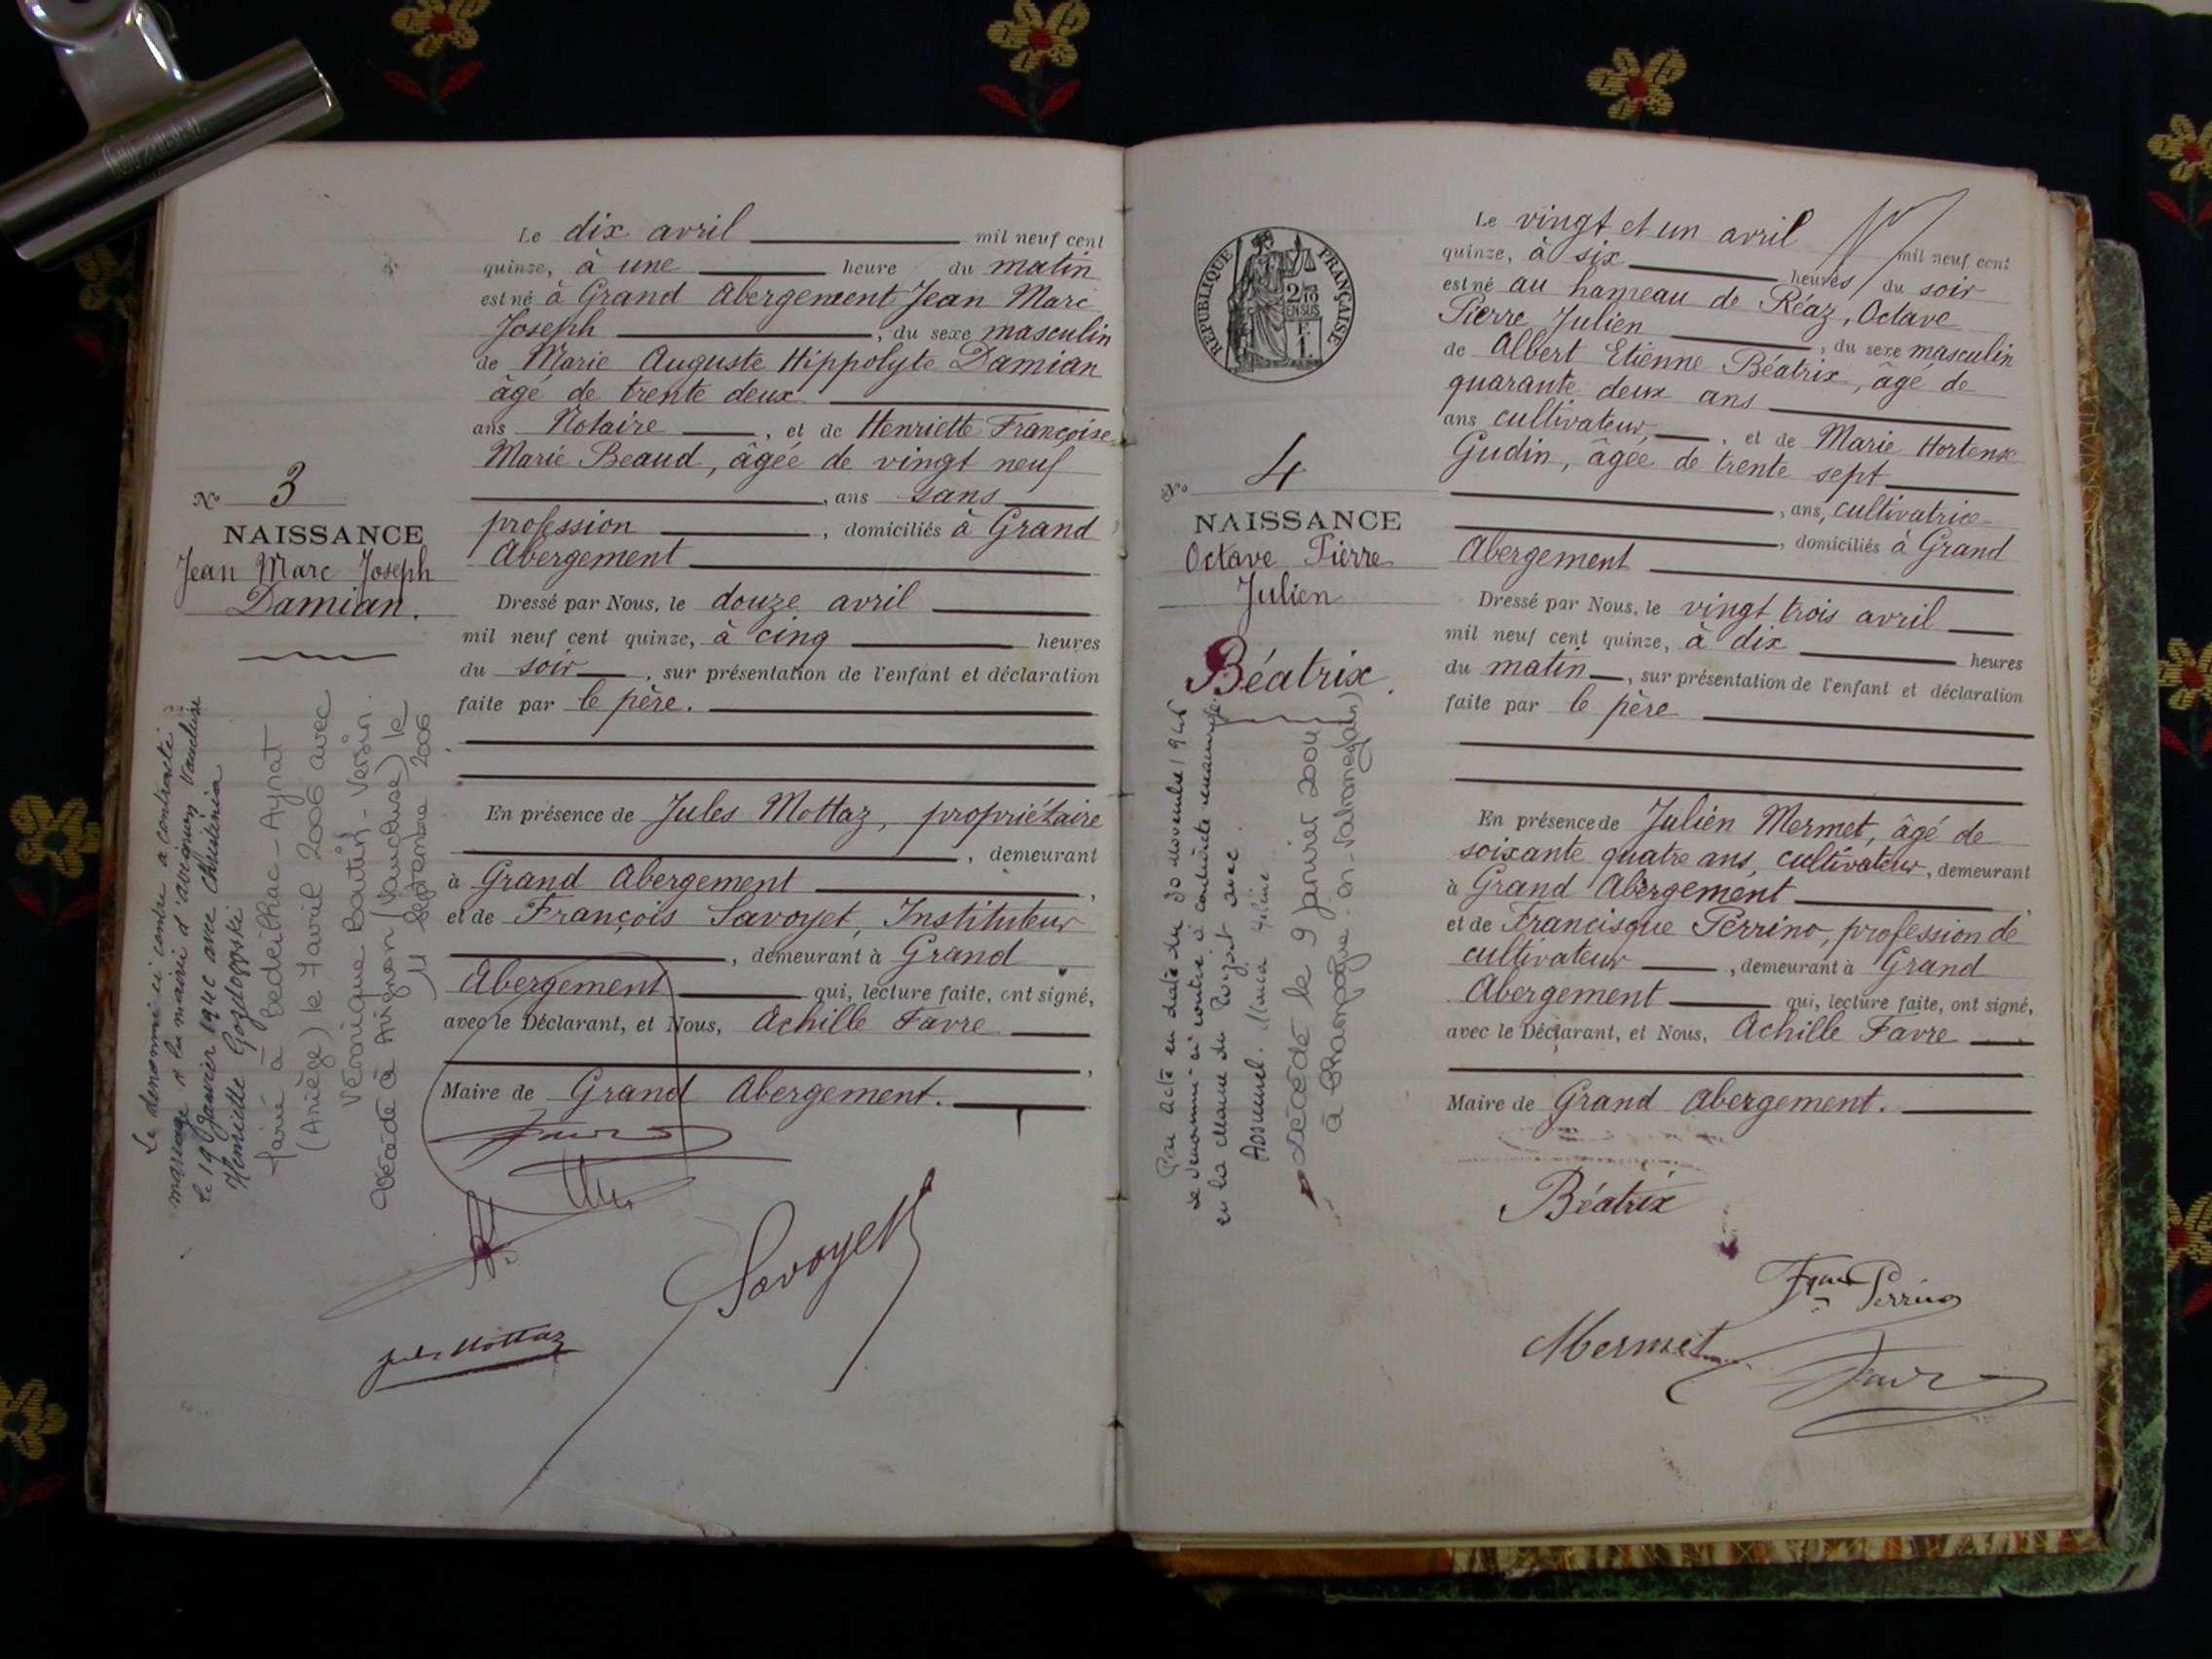 Le dix avril mil neuf cent
quinze, à une heure du matin
est né à Grand Abergement Jean Marc
Joseph, du sexe masculin
de Marie Auguste Hippolyte Damian
âgé de trente deux
ans Notaire, et de Henriette Françoise
Marie Beaud, âgée de vingt neuf
, ans sans
profession, domiciliés à Grand
Abergement
Dressé par Nous, le douze avril
mil neuf cent quinze, à cinq heures
du soir, sur présentation de l'enfant et déclaration
faite par le père.
En présence de Jules Mottaz, propriétaire
, demeurant
à Grand Abergement,
et de François Savoyet, Instituteur
, demeurant à Grand
Abergement qui, lecture faite, ont signé,
avec le Déclarant, et Nous, Achille Favre
,
Maire de Grand Abergement.
Savoyet
Jules Mottaz
No 3
NAISSANCE
Jean Marc Joseph
Damian.
Le dénommé ci contre a contracté
mariage à la mairie d'avignon Vaucluse
le 19 Janvier avec Christinia
Henriette
à Bédeilhac-Aynat
(Ariège) le 7 avril 2006 avec
Véronique Boutin-Versin
Décédé à Avignon (Vaucluse) le
11 septembre 2006
RÉPUBLIQUE FRANÇAISE
2/10
EN SUS
1 F.
No 4
NAISSANCE
Octave Pierre
Julien
Béatrix.
Par acte en date du 30 novembre
le dénommé ci contre a contracté mariage
en la Mairie de avec
Décédé le 9 janvier 2004
à Champagne-en-Valromey (Ain)
Le vingt et un avril mil neuf cent
quinze, à six heures du soir
est né au hameau de Réaz, Octave
Pierre Julien, du sexe masculin
de Albert Etienne Béatrix, âgé de
quarante deux ans
ans cultivateur, et de Marie Hortense
Gudin, âgée de trente sept
, ans, cultivatrice
, domiciliés à Grand
Abergement
Dressé par Nous, le vingt trois avril
mil neuf cent quinze, à dix heures
du matin, sur présentation de l'enfant et déclaration
faite par le père
En présence de Julien Mermet, âgé de
soixante quatre ans, cultivateur, demeurant
à Grand Abergement
et de Francisque Perrino, profession de
cultivateur, demeurant à Grand
Abergement qui, lecture faite, ont signé,
avec le Déclarant, et Nous, Achille Favre
Maire de Grand Abergement.
Béatrix
Fque Perrino
Mermet
Favre